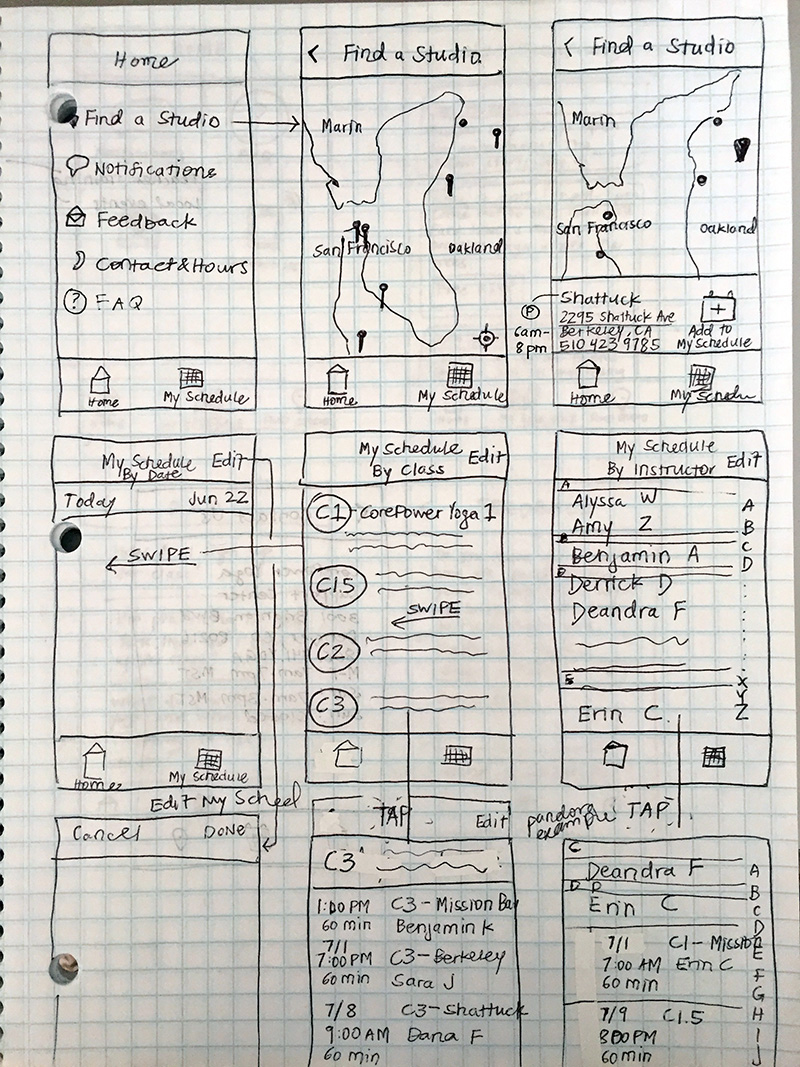 Home
Find a Studio
Notifications
Feedback
Contact & Hours
? FAQ
Home
My Schedule
< Find a Studio
Marin
San Francisco
Oakland
Home
My Schedule
< Find a Studio
Marin
San Francisco
Oakland
P
6am-
8pm
Shattuck
2295 Shattuck Ave
Berkeley, CA
510 423 9785
+
Add to
My Schedule
Home
My Schedu
My Schedule Edit
By Date
Today Jun 22
SWIPE
Home
My Schedule
My Schedule
By Class Edit
C1 - CorePower Yoga 1
C1.5
SWIPE
C2
C3
My Schedule
By Instructor Edit
A
Alyssa W
Amy Z
B
Benjamin A
D
Derrick D
Deandra F
E
Erin C.
A
B
C
D
X
Y
Z
Edit My Sched
Cancel DONE
TAP
Edit
C3
1:00 PM C3 - Mission Bay
60 min Benjamin K
7/1
7:00 PM C3 - Berkeley
60 min Sara J
7/8 C3 - Shattuck
9:00 AM Dana F
60 min
pandora
example
TAP
C
Deandra F
D D
Erin C
7/1 C1 - Mission
7:00 AM Erin C
60 min
7/9 C1.5
8:00 PM
60 min
A
B
C
D
E
F
G
H
I
J